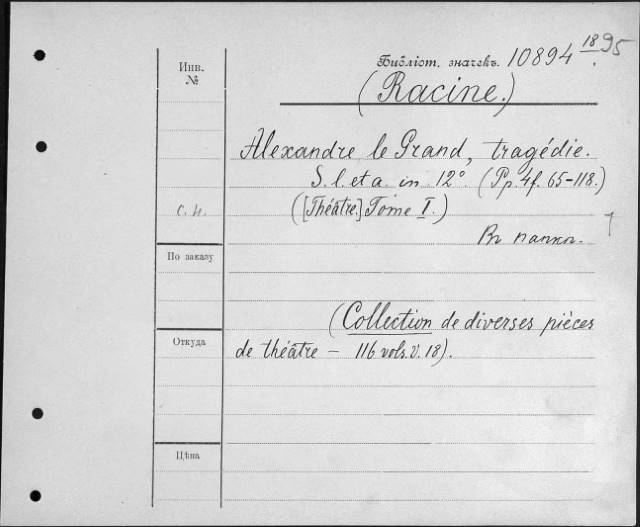 Инв. №
Библіот. значекъ. 10894 18 95
(Racine.)
Alexandre le Grand, tragédie.
S. l. et a. in 12° (Pp. 4f. 65-118.)
([Théâtre.] Tome I.)
Въ папкѣ.
По заказу
(Collection de diverses pièces
Откуда
de théâtre — 116 vols. V. 18).
Цѣна